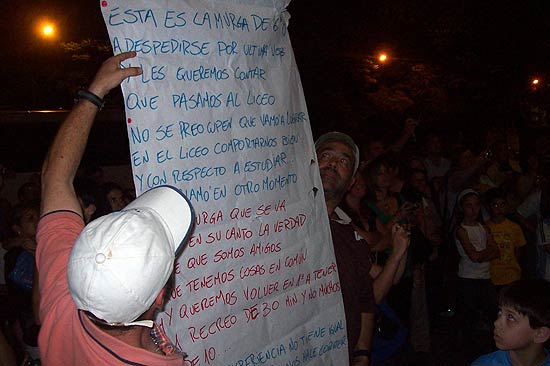 ESTA ES LA MURGA DE 6º
A DESPEDIRSE POR ULTIMA VEZ
Y LES QUEREMOS CONTAR
QUE PASAMOS AL LICEO
NO SE PREOCUPEN QUE VAMO A LOGRAR
EN EL LICEO COMPORTARNOS BIEN
Y CON RESPECTO A ESTUDIAR...
EN OTRO MOMENTO
MURGA QUE SE VA
EN SU CANTO LA VERDAD
E QUE SOMOS AMIGOS
QUE TENEMOS COSAS EN COMÚN
Y QUEREMOS VOLVER EN 1º A TENER
RECREO DE 30 MIN Y NO MUCHOS
DE 10...
EXPERIENCIA NO TIENE IGUAL